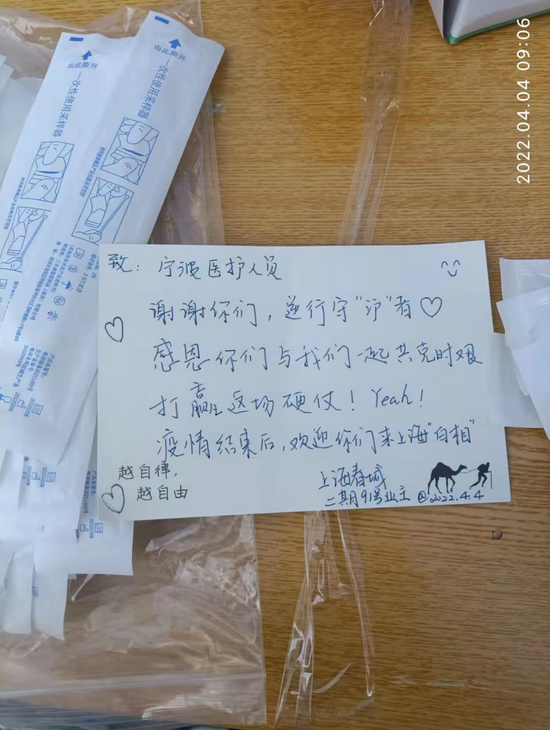 2022.04.04 09:06
由此撕开
一次性使用采样器
由此撕开
一次性使用采样器
致：宁波医护人员
谢谢你们，逆行守“沪”者♡
感恩你们与我们一起共克时艰
打赢这场硬仗！Yeah！
疫情结束后，欢迎你们来上海“白相”
越自律，
越自由
上海春城
二期91号业主
@2022.4.4